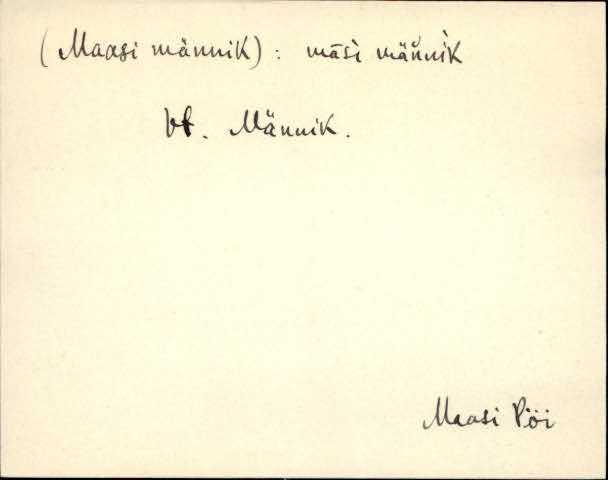 (Maasi männik): māsì mäň̀nìk
Vt. Männik.
Maasi Pöi